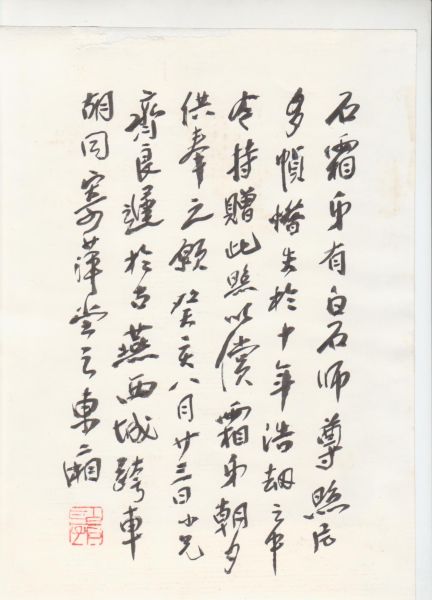 石霜弟有白石师尊照片
多幀惜失於十年浩劫之中
今持贈此照以償霜弟朝夕
供奉之願癸亥八月廿三日小兄
齊良遲於古燕西城跨車
胡同寄萍堂之東廂